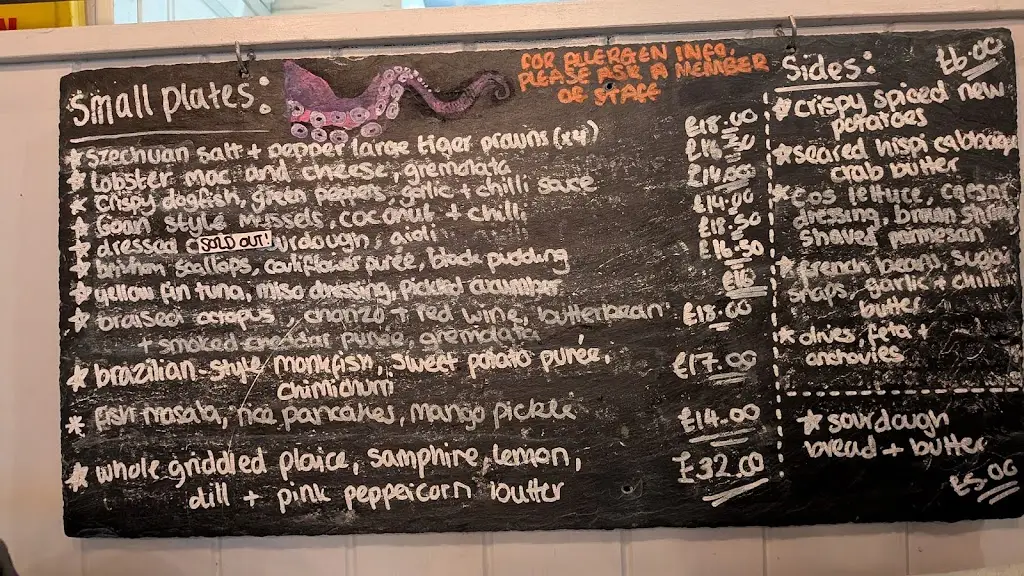 Small plates:
FOR ALLERGEN INFO,
PLEASE ASK A MEMBER
OF STAFF
* Szechuan salt + pepper large tiger prawns (x4) £18.00
* lobster mac and cheese, gremolata
* crispy dogfish, green peppers, garlic + chilli sauce £14.00
* Goan style mussels, coconut + chilli £14.00
* dressed SOLD OUT! sourdough, aioli £18.50
* brixham scallops, cauliflower purée, black pudding £16.50
* yellow fin tuna, miso dressing, pickled cucumber
* braised octopus, chorizo + red wine, butterbean £18.00
+ smoked cheddar purée, gremolata
* brazilian-style monkfish, sweet potato purée, £17.00
chimichurri
* fish masala, rice pancakes, mango pickle £14.00
* whole griddled plaice, samphire, lemon, £32.00
dill + pink peppercorn butter
Sides: £6.00
* crispy spiced new
potatoes
* seared hispi cabbage
crab butter
* cos lettuce, caesar
dressing, brown shrimp
shaved parmesan
* french beans, sugar
snaps garlic + chilli
butter
* olives, feta +
anchovies
* sourdough
bread + butter
£5.00